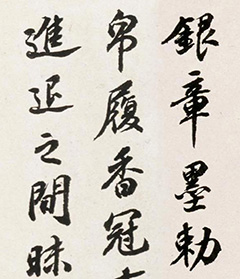 銀章墨勅
帛履香冠
進退之間昧